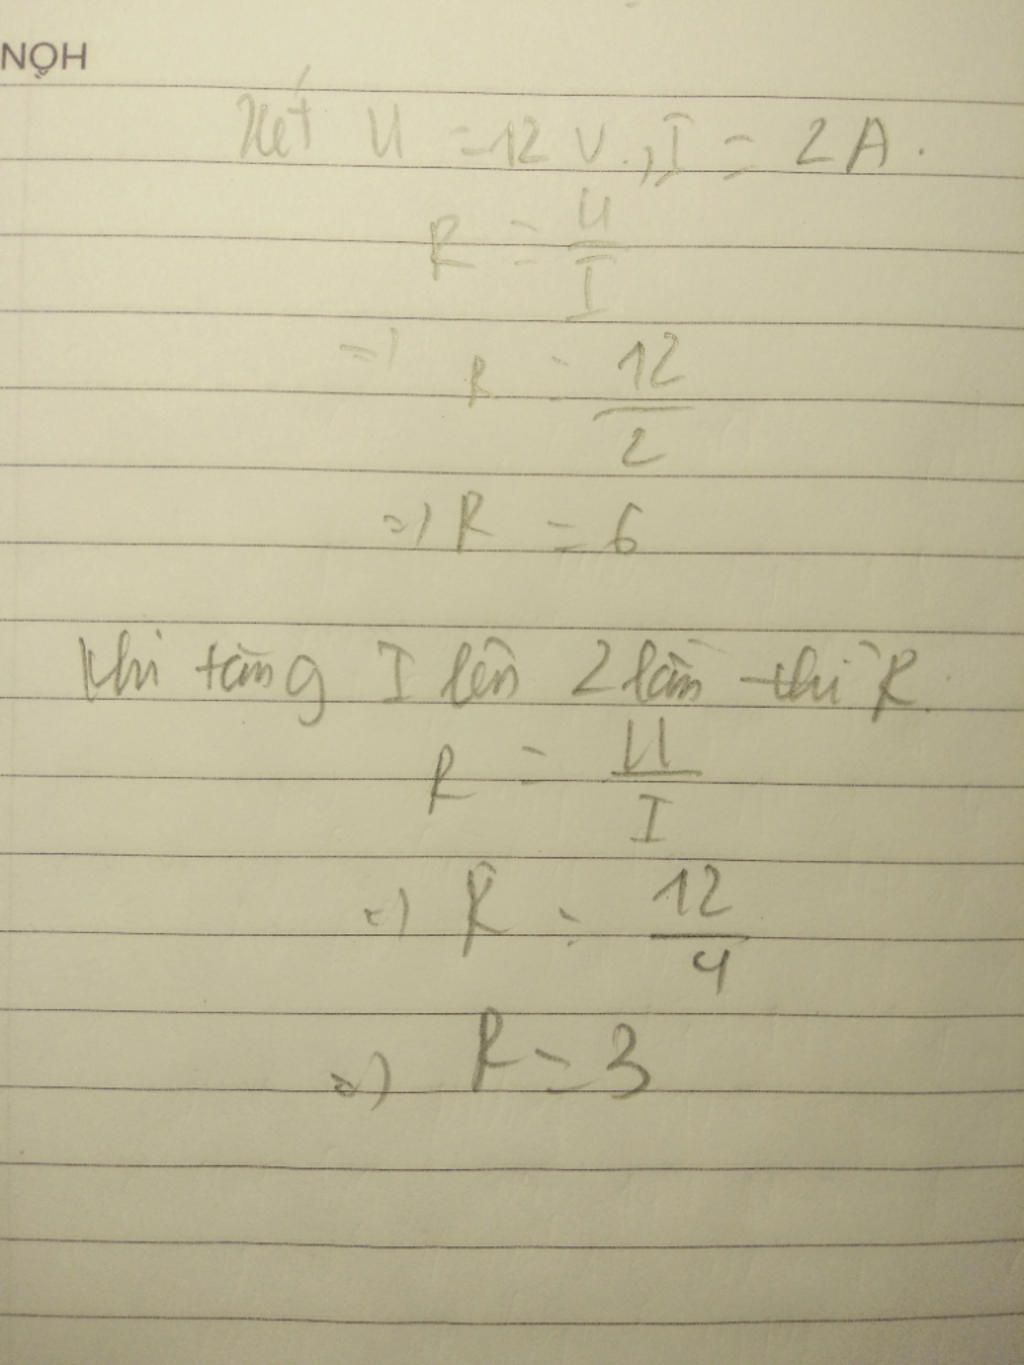 HỌN
Xét U = 12 V., I = 2 A.
R = U / I
=) R = 12 / 2
=) R = 6
Khi tăng I lên 2 lần thì R.
R = U / I
=) R = 12 / 4
=) R = 3